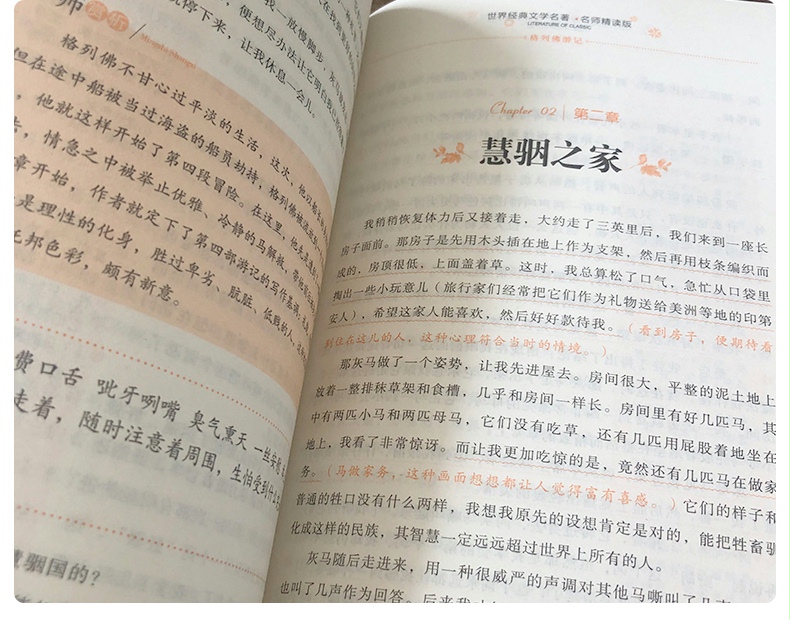 师赏析
格列佛不甘心过平淡的生活，这次，他
但在途中船被当过海盗的船员劫持，格列佛被
，他就这样开始了第四段冒险。在这里，他
，情急之中被举止优雅、冷静的马解救，
章开始，作者就定下了第四部游记的写作基调，
是理性的化身，胜过卑劣、肮脏、低贱的人，
托邦色彩，颇有新意。
费口舌 呲牙咧嘴 臭气熏天 一丝
走着，随时注意着周围，生怕受到什
慧骃国的？
停下来，让我休息一会儿。
，便想尽办法让它明白
放慢脚步，
世界经典文学名著·名师精读版
LITERATURE OF CLASSIC
格列佛游记
Chapter 02 第二章
慧骃之家
我稍稍恢复体力后又接着走，大约走了三英里后，我们来到一座长
房子面前。那房子是先用木头插在地上作为支架，然后再用枝条编织而
成的，房顶很低，上面盖着草。这时，我总算松了口气，急忙从口袋里
掏出一些小玩意儿（旅行家们经常把它们作为礼物送给美洲等地的印第
安人），希望这家人能喜欢，然后好好款待我。（看到房子，便期待看
到住在这儿的人，这种心理符合当时的情境。）
那灰马做了一个姿势，让我先进屋去。房间很大，平整的泥土地上
放着一整排秣草架和食槽，几乎和房间一样长。房间里有好几匹马，其
中有两匹小马和两匹母马，它们没有吃草，还有几匹用屁股着地坐在
地上，我看了非常惊讶。而让我更加吃惊的是，竟然还有几匹马在做家
务。（马做家务，这种画面想想都让人觉得富有喜感。）它们的样子和
普通的牲口没有什么两样，我想我原先的设想肯定是对的，能把牲畜驯
化成这样的民族，其智慧一定远远超过世界上所有的人。
灰马随后走进来，用一种很威严的声调对其他马嘶叫了几声
也叫了几声作为回答。后来我